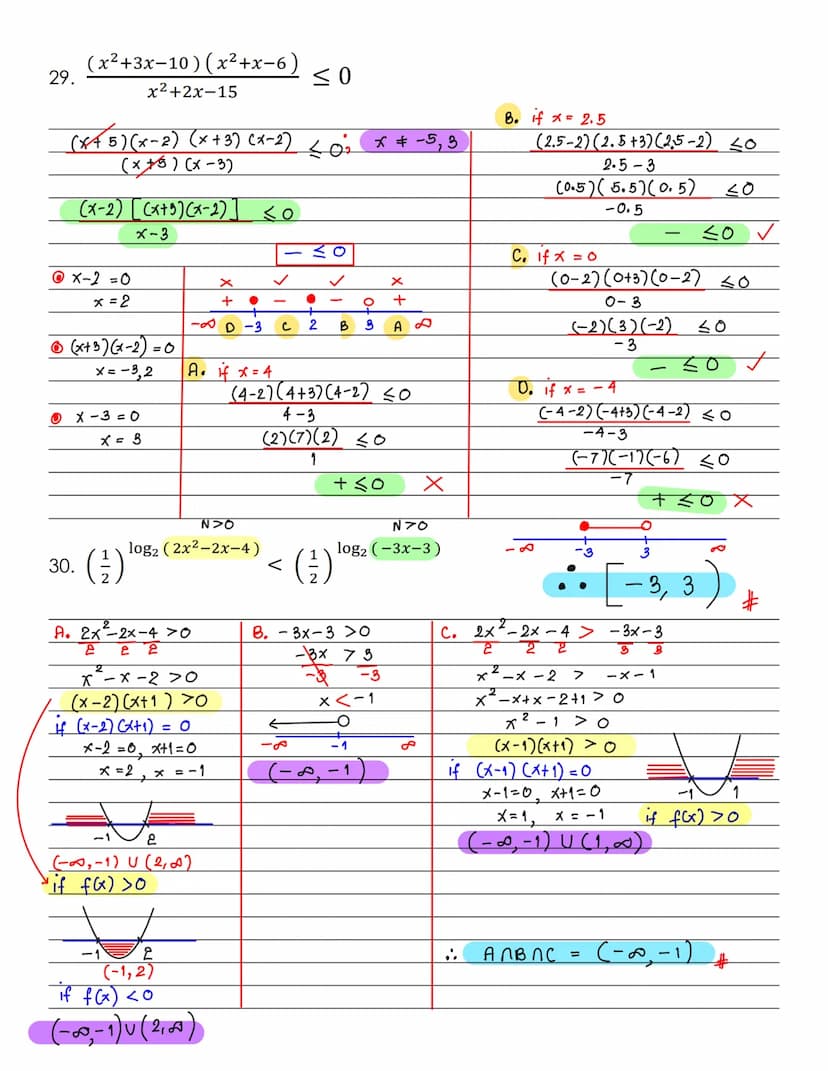 29. (x²+3x−10)(x²+x−6) / x²+2x−15 ≤ 0
(x+5)(x-2) (x+3)(x-2) / (x+5)(x-3) ≤ 0; x ≠ -5, 3
(x-2)[(x+3)(x-2)] / x-3 ≤ 0
− ≤ 0
x-2 = 0
x = 2
(x+3)(x-2) = 0
x = -3,2
x-3 = 0
x = 3
× ✓ ✓ ×
+ − − +
-∞ D -3 C 2 B 3 A ∞
A. if x=4
(4-2)(4+3)(4-2) / 4-3 ≤0
(2)(7)(2) / 1 ≤0
+ ≤ 0 ×
B. if x = 2.5
(2.5-2)(2.5+3)(2.5-2) / 2.5-3 ≤0
(0.5)(5.5)(0.5) / -0.5 ≤0
− ≤0 ✓
C. if x = 0
(0-2)(0+3)(0-2) / 0-3 ≤0
(-2)(3)(-2) / -3 ≤0
− ≤0 ✓
D. if x = -4
(-4-2)(-4+3)(-4-2) / -4-3 ≤0
(-7)(-1)(-6) / -7 ≤0
+ ≤0 ×
-∞ -3 3 ∞
∴ [-3, 3) #
N>0 N>0
30. (1/2)^log₂(2x²−2x−4) < (1/2)^log₂(−3x−3)
A. 2x²-2x-4 >0
2 2 2
x²-x-2 >0
(x-2)(x+1) >0
if (x-2)(x+1) = 0
x-2=0, x+1=0
x=2, x=-1
-1 2
(-∞,-1) U (2,∞)
if f(x) >0
-1 2
(-1,2)
if f(x) <0
(-∞,-1)∪(2,∞)
B. -3x-3 >0
-3x > 3
-3 -3
x < -1
-∞ -1 ∞
(-∞,-1)
C. 2x²-2x-4 > -3x-3
2 2 2 3 3
x²-x-2 > -x-1
x²-x+x-2+1 > 0
x²-1 > 0
(x-1)(x+1) > 0
if (x-1)(x+1)=0
x-1=0, x+1=0
x=1, x=-1
-1 1
if f(x)>0
(-∞,-1) U (1,∞)
∴ A∩B∩C = (-∞,-1) #